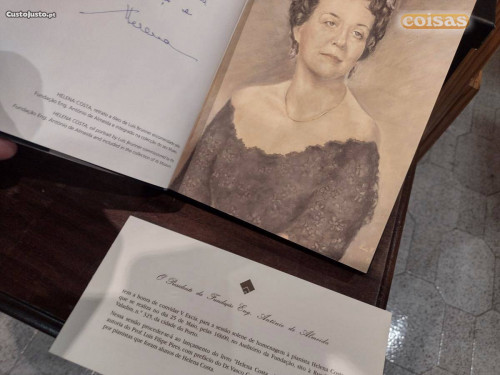 CustoJusto.pt
coisas
Helena
HELENA COSTA, retrato a óleo de Luis
Fundação Eng. António de Almeida e integrado na
HELENA COSTA, oil portrait by Luis
Fundação Eng. António de Almeida and included in the collection of
O Presidente da Fundação Eng. António de Almeida
tem a honra de convidar V. Excia. para a sessão solene de homenagem à pianista Helena Costa,
que se realiza no dia 25 de Maio, pelas no Auditório da Fundação, sito à Rua
Valadim, n.º 325, da cidade do Porto.
Nessa sessão proceder-se-á ao lançamento do livro "Helena Costa
autoria do Prof. Luís Filipe Pires, com prefácio do Dr. Vasco
por pianistas que foram alunos de Helena Costa.